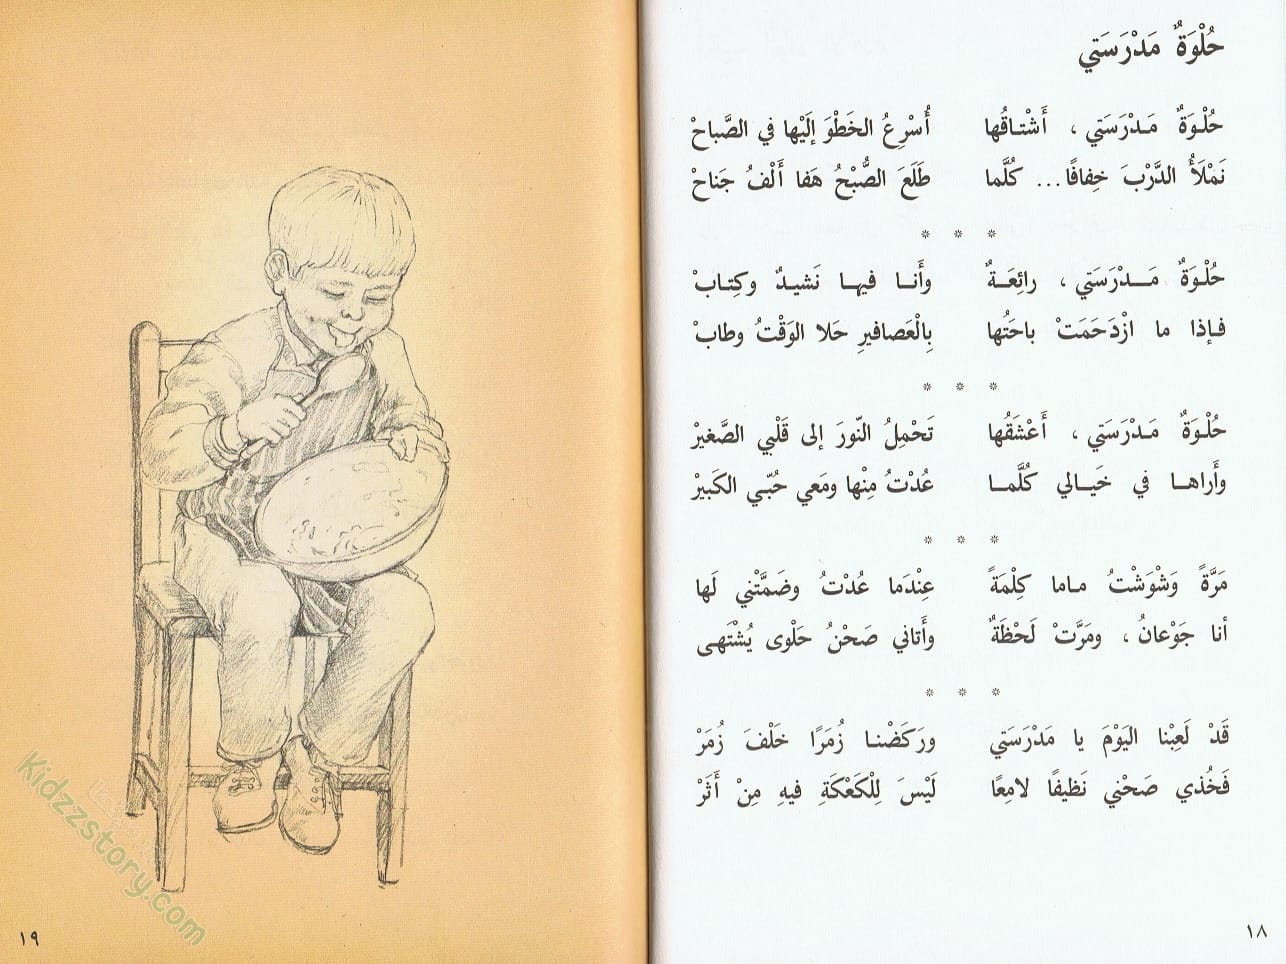 حُلْوَةٌ مَدْرَسَتي
حُلْوَةٌ مَدْرَسَتي ، أَشْتاقُها أُسْرِعُ الخَطْوَ إلَيْها في الصَّباحْ
نَمْلَأُ الدَّرْبَ خِفافًا... كُلَّما طَلَعَ الصُّبْحُ هَفا أَلْفُ جَناحْ
* * *
حُلْوَةٌ مَدْرَسَتي ، رائِعَةٌ وأَنا فيها نَشيدٌ وكِتابْ
فإذا ما ازْدَحَمَتْ باحَتُها بِالْعَصافيرِ حَلا الوَقْتُ وطابْ
* * *
حُلْوَةٌ مَدْرَسَتي ، أَعْشَقُها تَحْمِلُ النّورَ إلى قَلْبي الصَّغيرْ
وأَراها في خَيالي كُلَّما عُدْتُ مِنْها ومَعي حُبّي الكَبيرْ
* * *
مَرَّةً وَشْوَشْتُ ماما كِلْمَةً عِنْدَما عُدْتُ وضَمَّتْني لَها
أنا جَوْعانُ ، ومَرَّتْ لَحْظَةٌ وأَتاني صَحْنُ حَلْوى يُشْتَهى
* * *
قَدْ لَعِبْنا اليَوْمَ يا مَدْرَسَتي ورَكَضْنا زُمَرًا خَلْفَ زُمَرْ
فَخُذي صَحْني نَظيفًا لامِعًا لَيْسَ لِلْكَعْكَةِ فيهِ مِنْ أَثَرْ
١٨
Kidzzstory.com
١٩